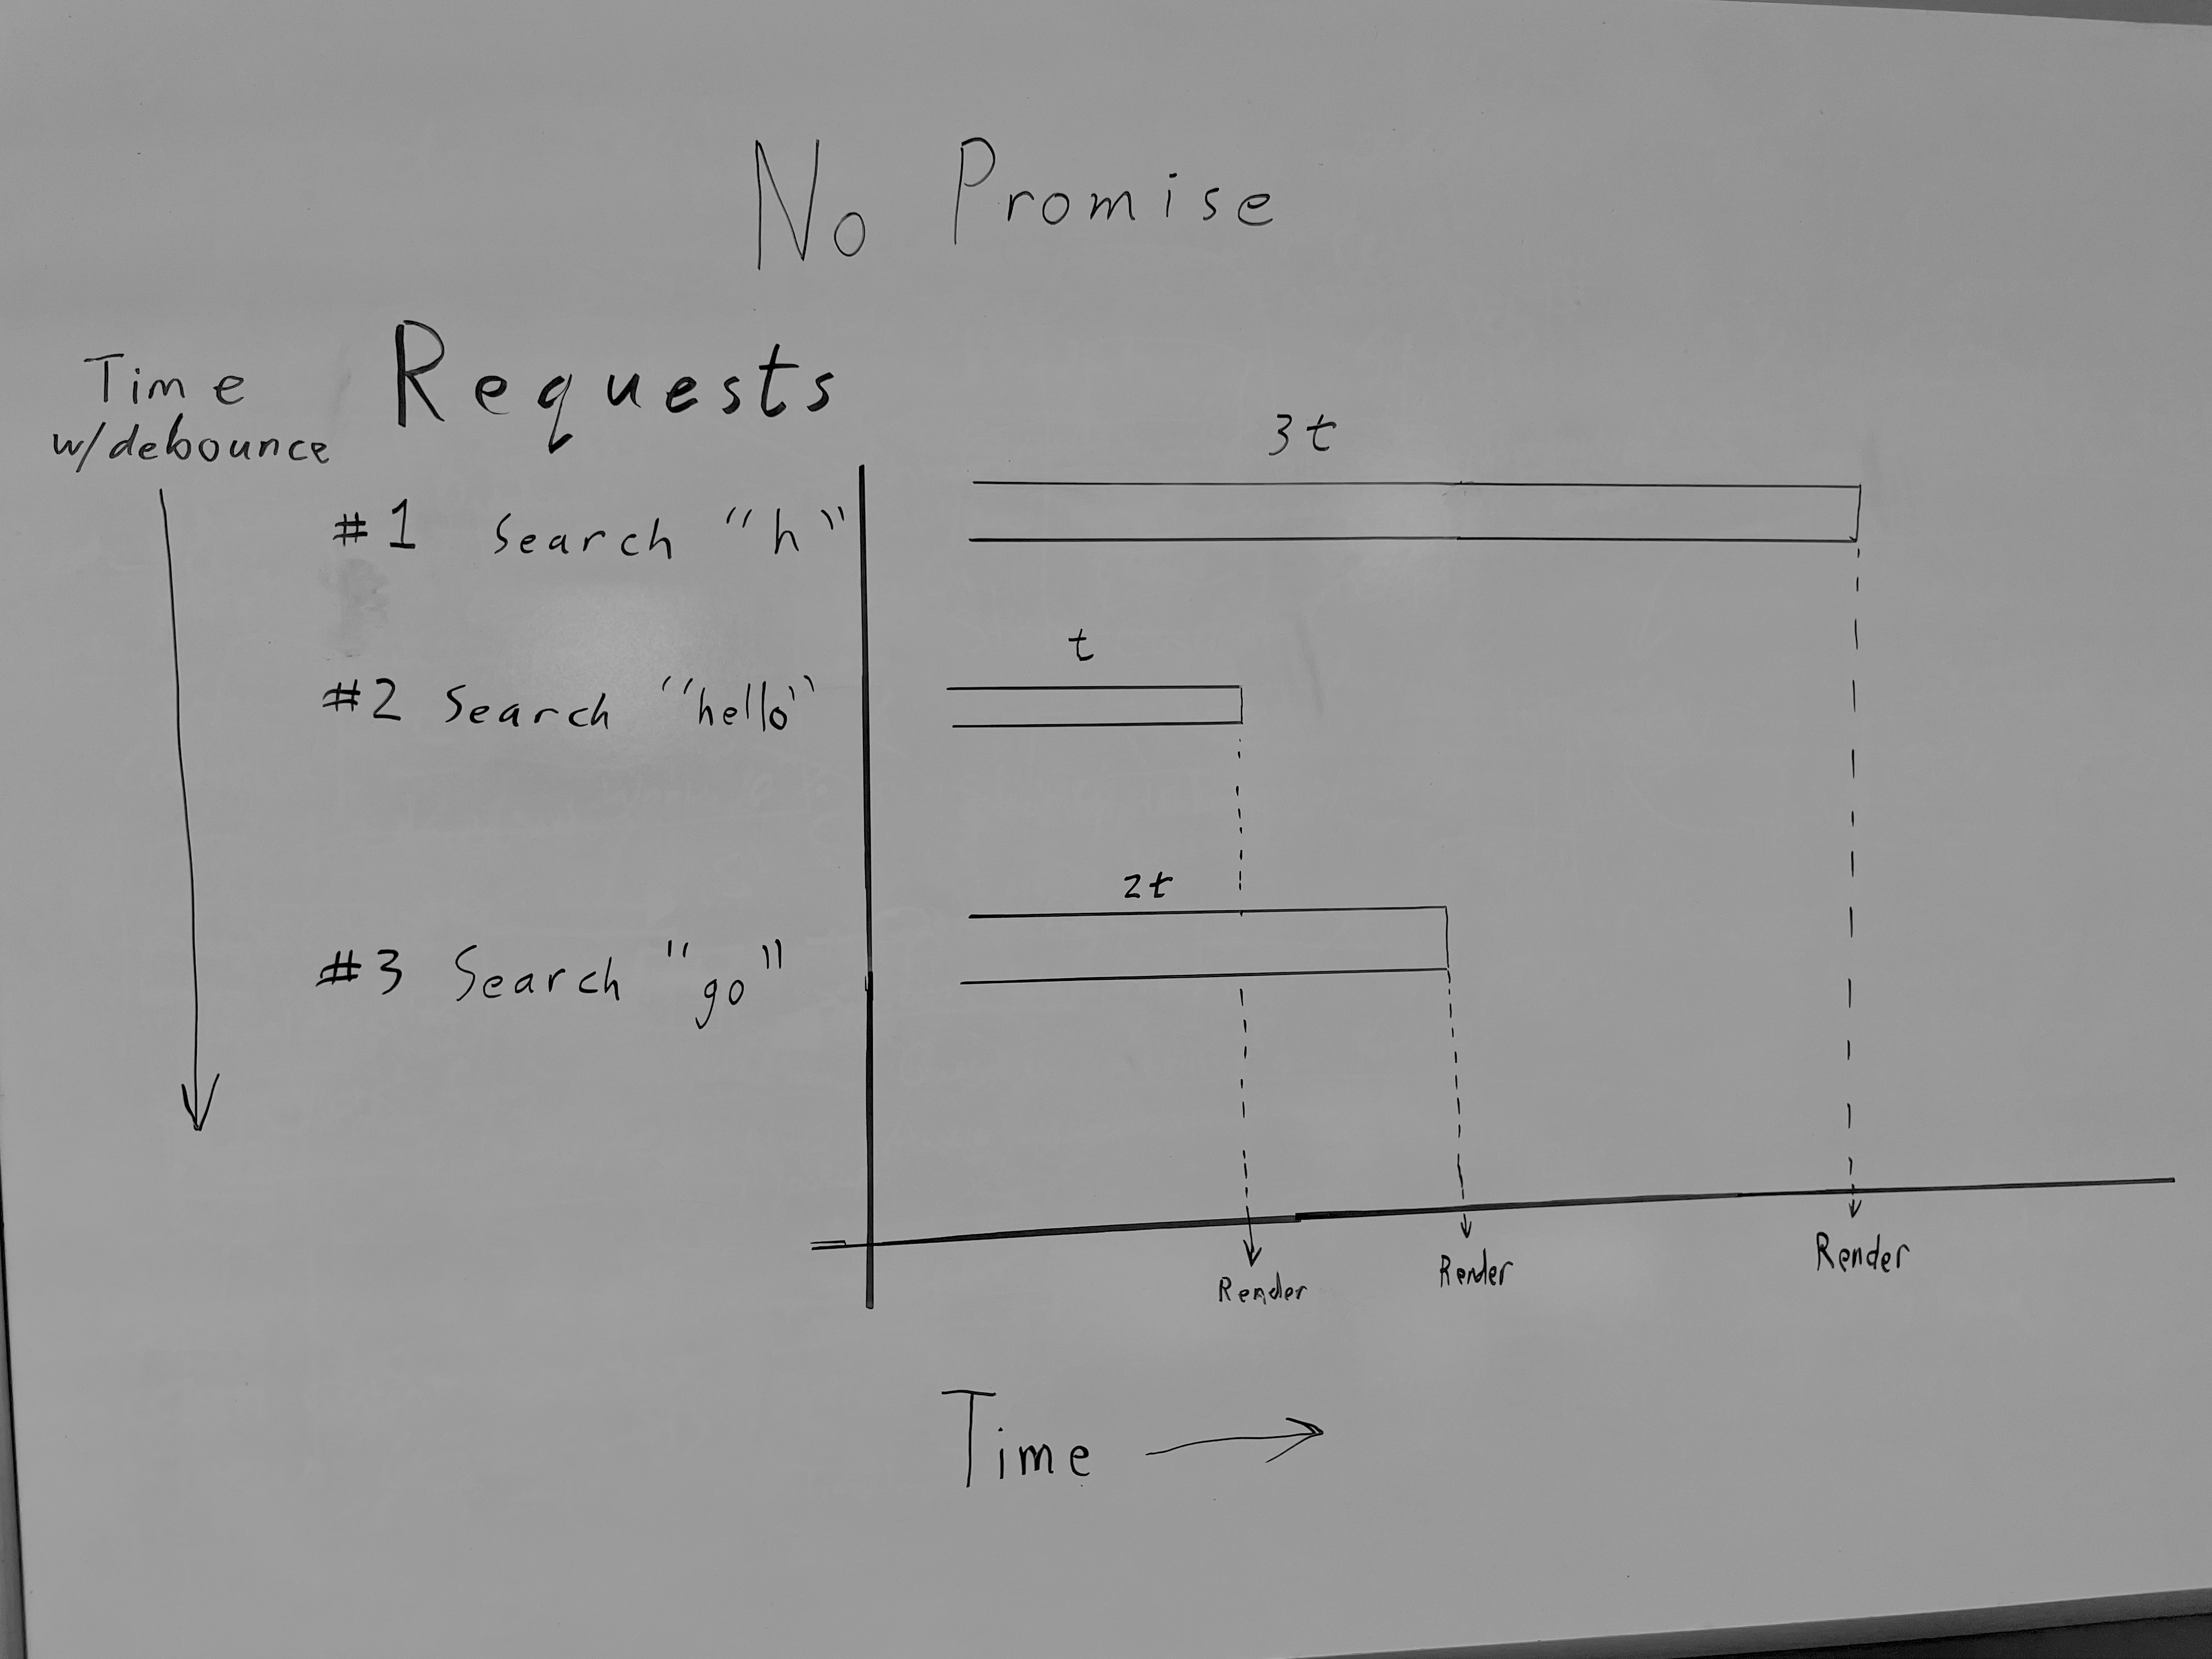 No Promise
Time
w/debounce
Requests
3t
#1 Search "h"
t
#2 Search "hello"
2t
#3 Search "go"
Render
Render
Render
Time